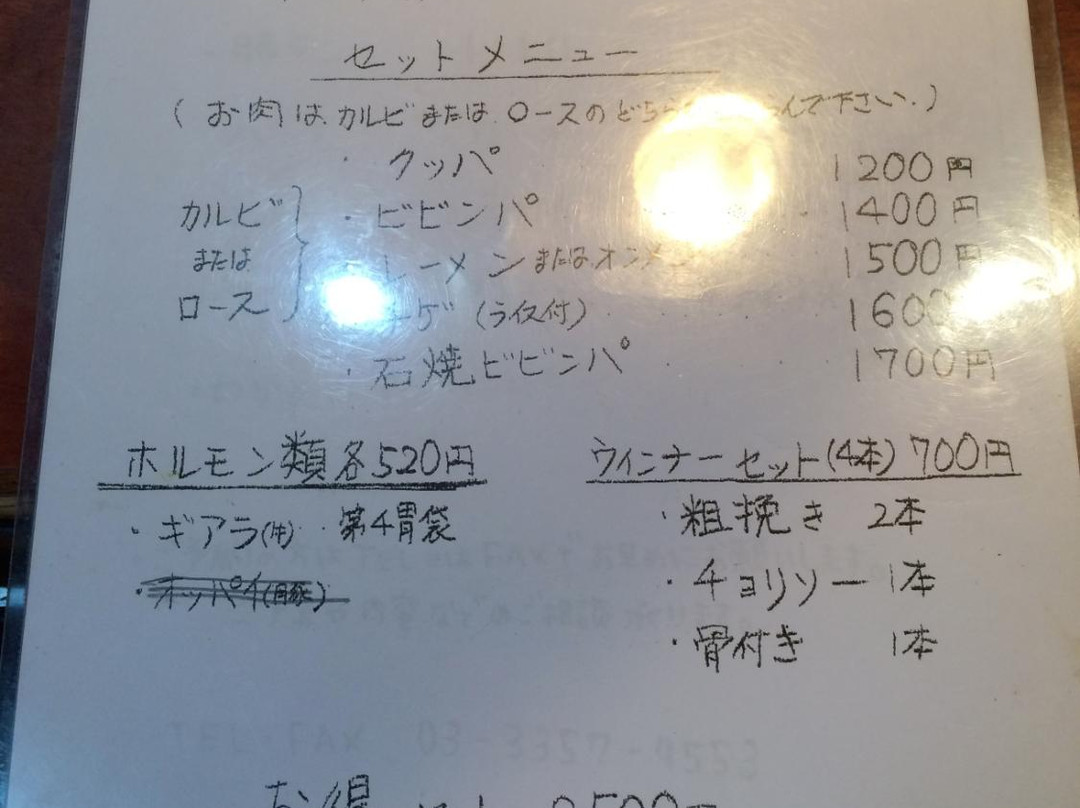 セットメニュー
(お肉は、カルビまたは、ロースのどちら んで下さい。)
・クッパ 1200円
カルビ ・ビビンパ 1400円
または レーメンまたはオンメ 1500円
ロース ゲ(ライス付) 160
・石焼ビビンパ 1700円
ホルモン類各520円
・ギアラ(牛)・第4胃袋
・オッパイ(豚)
ウインナーセット(4本)700円
・粗挽き 2本
・チョリソー 1本
・骨付き 1本
TEL・FAX 03-3357-4553
お得